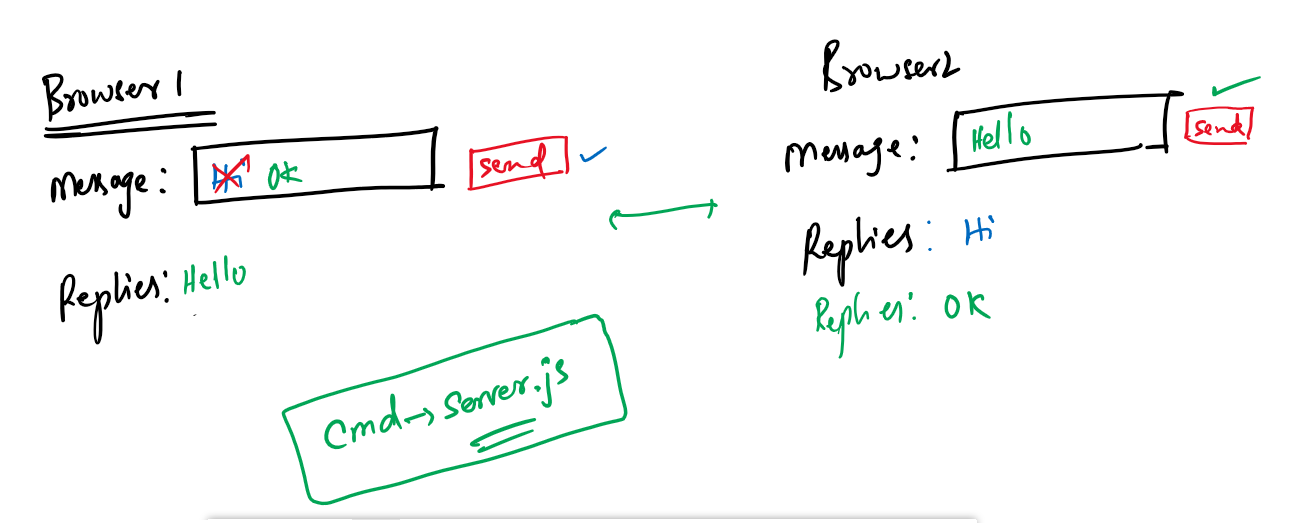 Browser 1
Message: Hi OK send
Replies: Hello
Browser2
Message: Hello send
Replies: Hi
Replies: OK
Cmd→ Server.js